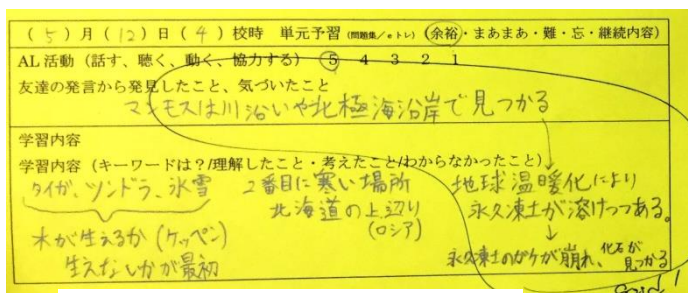 (5)月(12)日(4)校時 単元予習(問題集/eトレ)(余裕・まあまあ・難・忘・継続内容)
AL活動(話す、聴く、動く、協力する) 5 4 3 2 1
友達の発言から発見したこと、気づいたこと
マンモスは川沿いや北極海沿岸で見つかる
学習内容
学習内容(キーワードは?/理解したこと・考えたこと/わからなかったこと)
タイガ、ツンドラ、氷雪
木が生えるか(ケッペン)
生えないかが最初
2番目に寒い場所
北海道の上辺り
(ロシア)
地球温暖化により
永久凍土が溶けつつある。
↓
永久凍土のガケが崩れ、化石が
見つかる
Good!